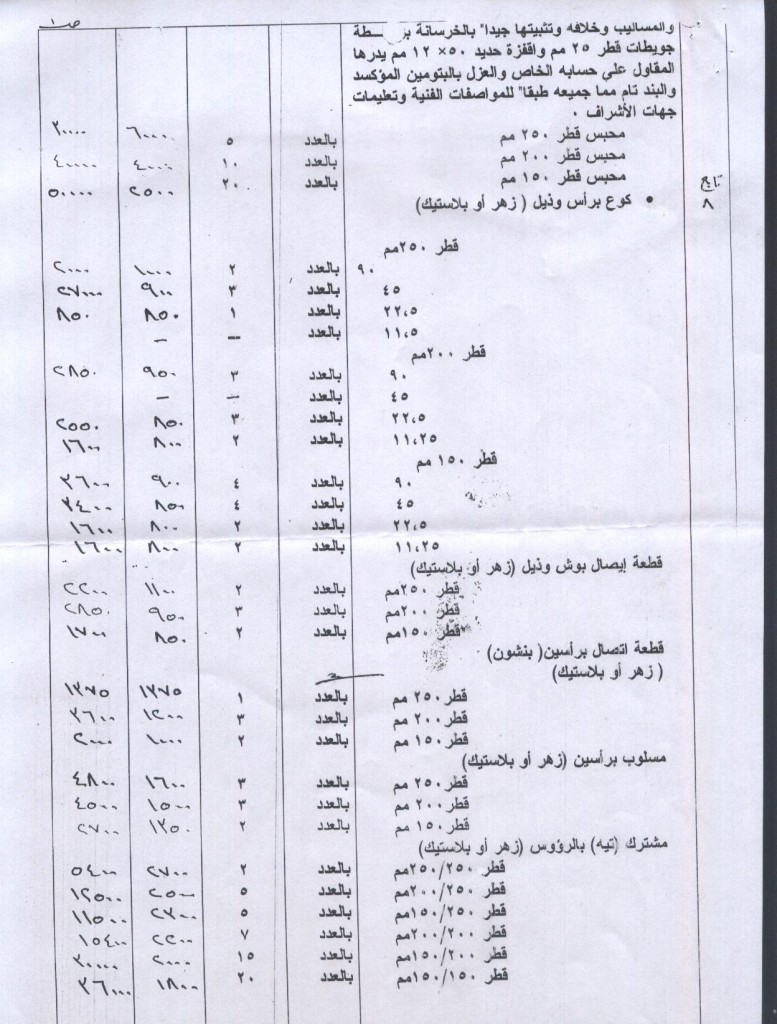 ص١
والمساليب وخلافه وتثبيتها جيدا" بالخرسانة
جويطات قطر ٢٥ مم واقفزة حديد ٥٠× ١٢ مم يدرها
المقاول علي حسابه الخاص والعزل بالبتومين المؤكسد
والبند تام مما جميعه طبقا" للمواصفات الفنية وتعليمات
جهات الأشراف .
محبس قطر ٢٥٠ مم بالعدد ٥ ٦٠٠٠ ٣٠٠٠٠
محبس قطر ٢٠٠ مم بالعدد ١٠ ٤٠٠٠ ٤٠٠٠٠
محبس قطر ١٥٠ مم بالعدد ٢٠ ٢٥٠٠ ٥٠٠٠٠
تابع
٨
• كوع برأس وذيل ( زهر أو بلاستيك)
قطر ٢٥٠مم
٩٠ بالعدد ٢ ١٠٠٠ ٢٠٠٠
٤٥ بالعدد ٣ ٩٠٠ ٢٧٠٠٠
٢٢،٥ بالعدد ١ ٨٥٠ ٨٥٠
١١،٥ بالعدد -- -
قطر ٢٠٠مم
٩٠ بالعدد ٣ ٩٥٠ ٢٨٥٠
٤٥ بالعدد -- -
٢٢،٥ بالعدد ٣ ٨٥٠ ٢٥٥٠
١١،٢٥ بالعدد ٢ ٨٠٠ ١٦٠٠
قطر ١٥٠ مم
٩٠ بالعدد ٤ ٩٠٠ ٣٦٠٠
٤٥ بالعدد ٤ ٨٥٠ ٣٤٠٠
٢٢،٥ بالعدد ٢ ٨٠٠ ١٦٠٠
١١،٢٥ بالعدد ٢ ٨٠٠ ١٦٠٠
قطعة إيصال بوش وذيل (زهر أو بلاستيك)
قطر ٢٥٠مم بالعدد ٢ ١١٠٠ ٢٢٠٠
قطر ٢٠٠مم بالعدد ٣ ٩٥٠ ٢٨٥٠
قطر ١٥٠مم بالعدد ٢ ٨٥٠ ١٧٠٠
قطعة اتصال برأسين( بنشون)
( زهر أو بلاستيك)
قطر ٢٥٠ مم بالعدد ١ ١٣٧٥ ١٣٧٥
قطر ٢٠٠ مم بالعدد ٣ ١٢٠٠ ٣٦٠٠
قطر ١٥٠ مم بالعدد ٢ ١٠٠٠ ٢٠٠٠
مسلوب برأسين (زهر أو بلاستيك)
قطر ٢٥٠ مم بالعدد ٣ ١٦٠٠ ٤٨٠٠
قطر ٢٠٠ مم بالعدد ٣ ١٥٠٠ ٤٥٠٠
قطر ١٥٠ مم بالعدد ٢ ١٣٥٠ ٢٧٠٠
مشترك (تيه) بالرؤوس (زهر أو بلاستيك)
قطر ٢٥٠/٢٥٠مم بالعدد ٢ ٢٧٠٠ ٥٤٠٠
قطر ٢٠٠/٢٥٠مم بالعدد ٥ ٢٥٠٠ ١٢٥٠٠
قطر ١٥٠/٢٥٠مم بالعدد ٥ ٢٣٠٠ ١١٥٠٠
قطر ٢٠٠/٢٠٠مم بالعدد ٧ ٢٢٠٠ ١٥٤٠٠
قطر ١٥٠/٢٠٠مم بالعدد ١٥ ٢٠٠٠ ٣٠٠٠٠
قطر ١٥٠/١٥٠مم بالعدد ٢٠ ١٨٠٠ ٣٦٠٠٠